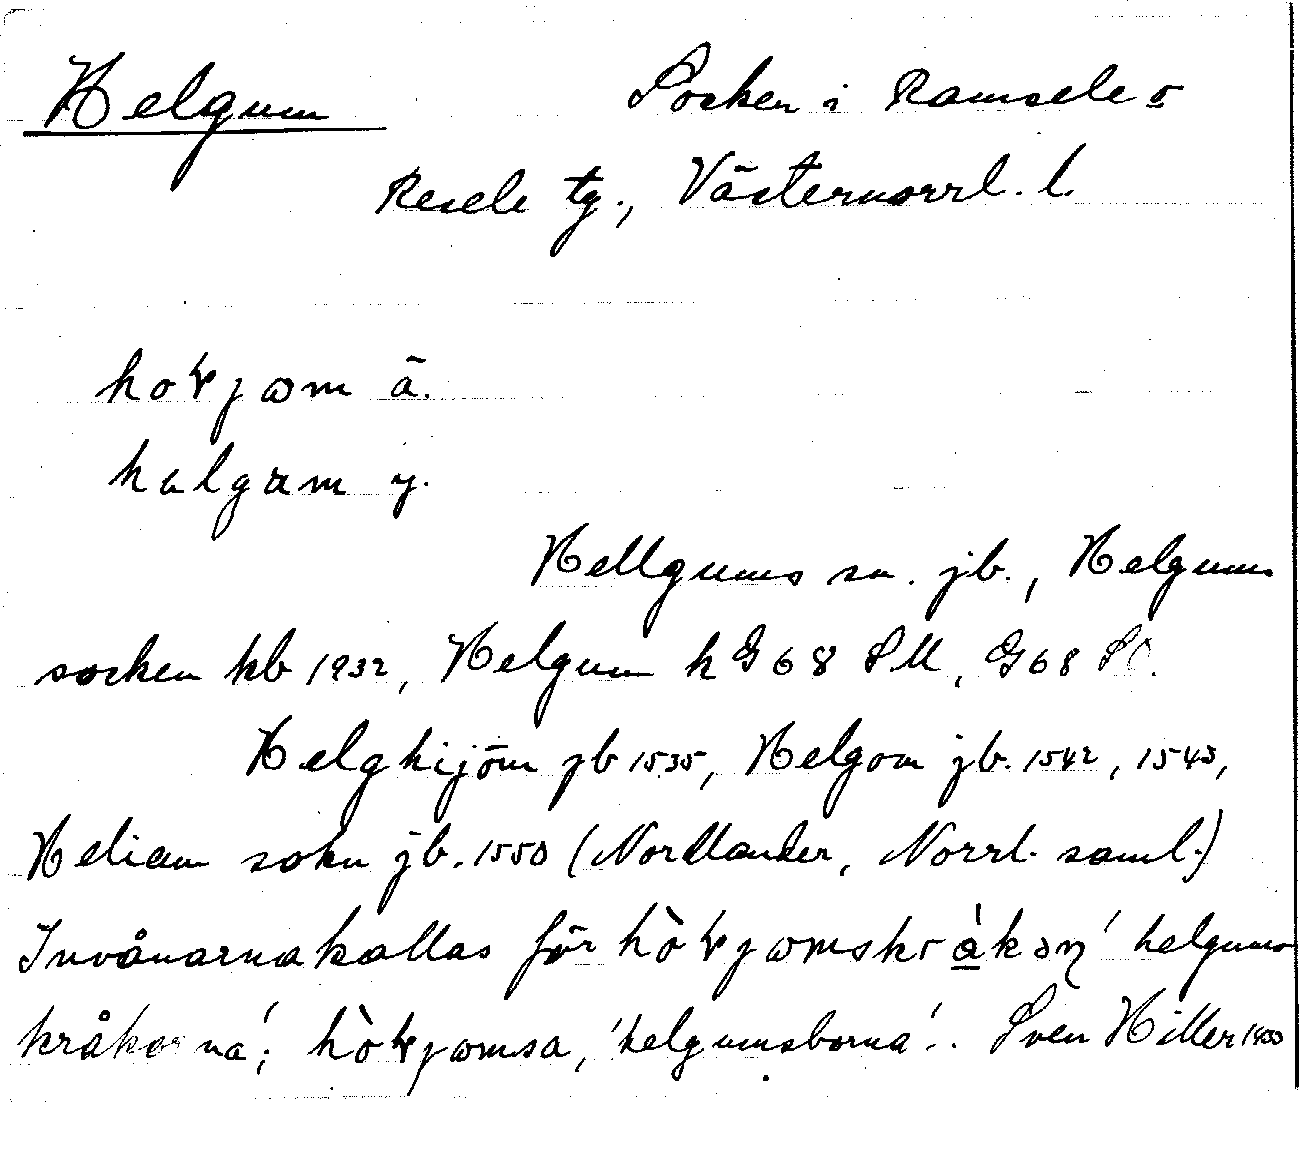 Helgum Socken i Ramsele o
Resele tg., Västernorrl. l.
ä.
y.
Hellgums sn. jb., Helgums
socken kb 1932, Helgum k G 68 SM, G 68
Helghijöm jb 1535, Helgom jb. 1542, 1543,
Heliam sokn jb. 1550 (Nordlander, Norrl. saml.)
Invånarna kallas för 'helgums
kråkorna'; 'helgumsborna'. Sven Hiller